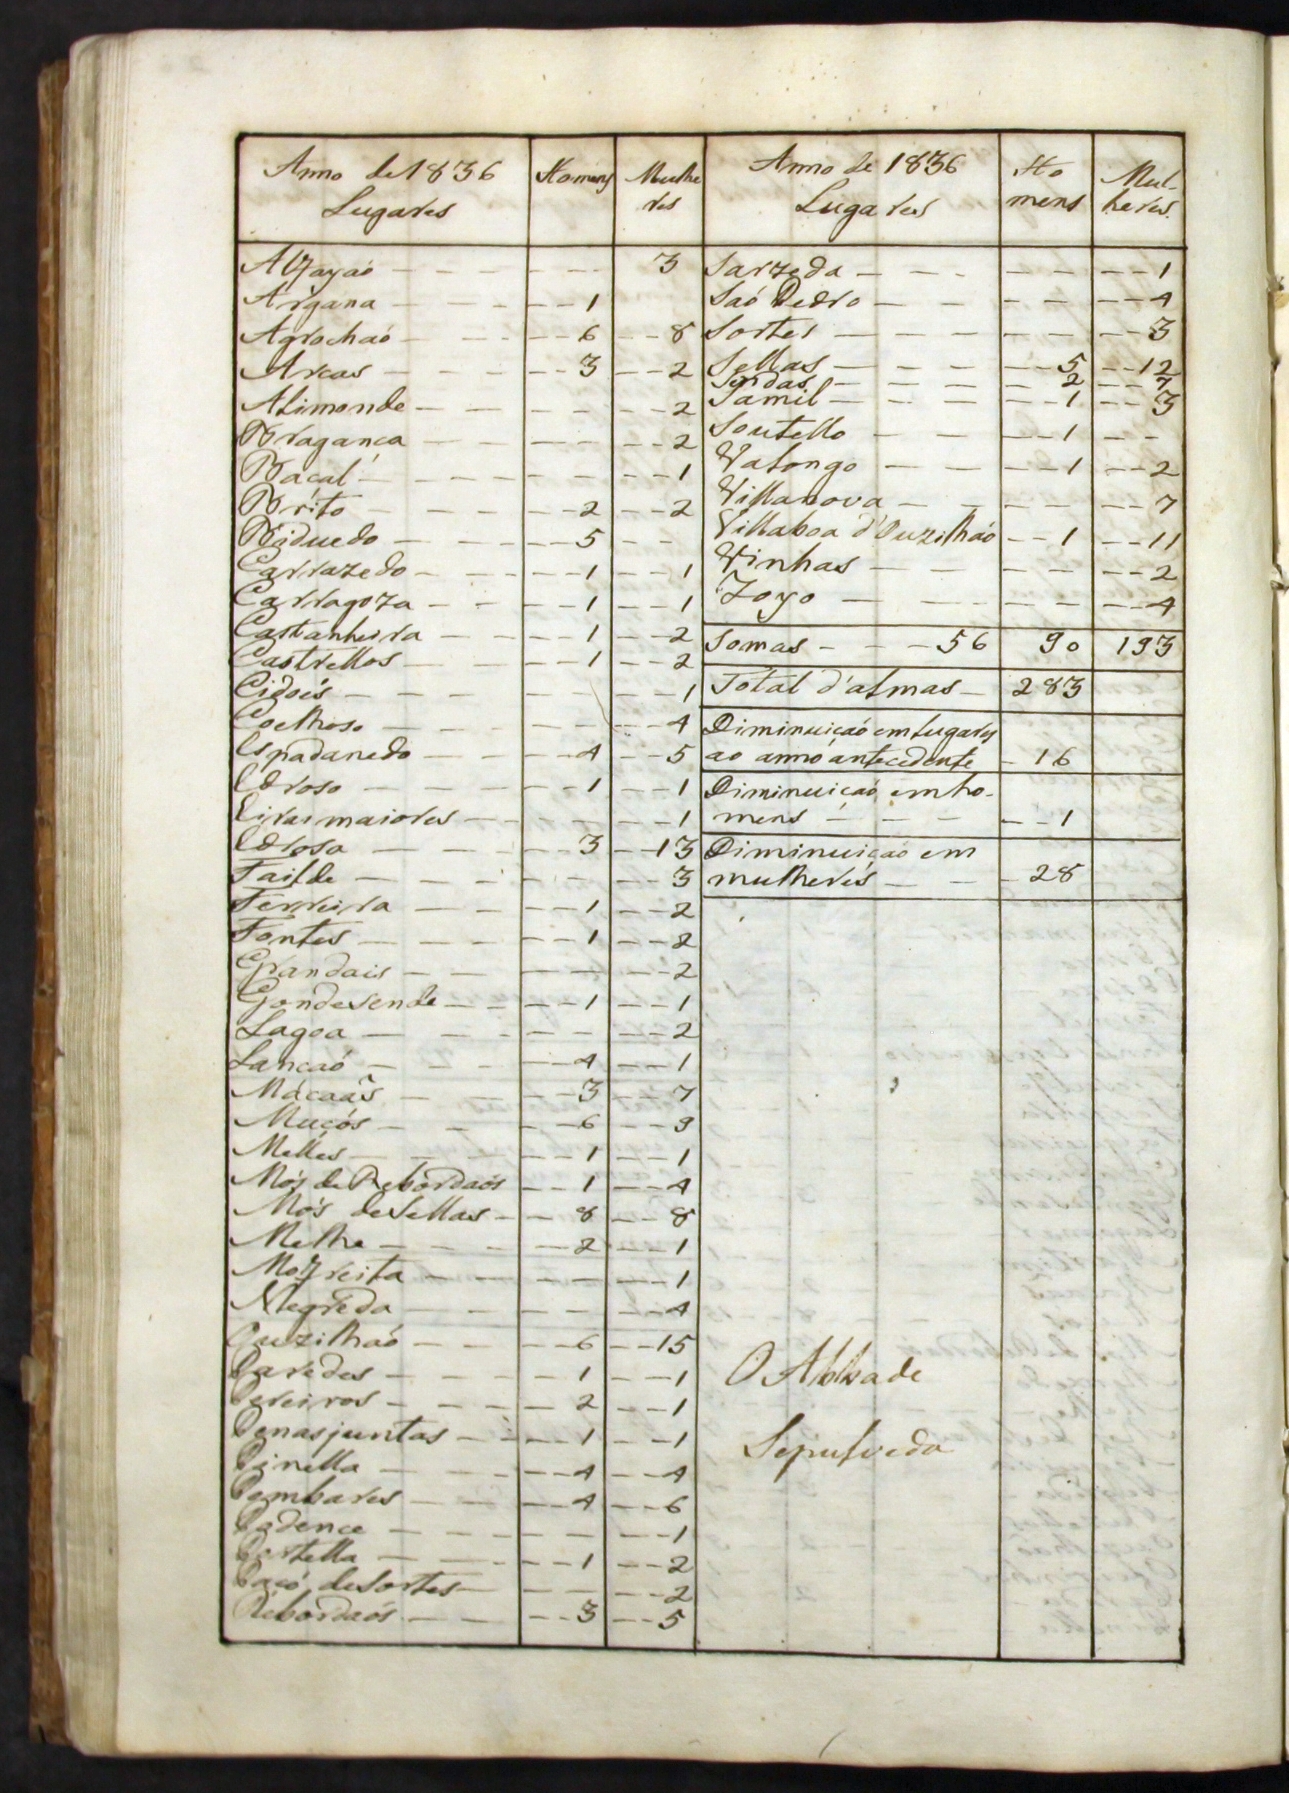 Anno de 1836 Homens Mulhe
Lugares res
Alfayaó - - - - - - 3
Argana - - - - - 1
Agrochaó - - - 6 - - 8
Arcas - - - - - 3 - - 2
Alimonde - - - - - - 2
Bragança - - - - - - 2
Baçal - - - - - - - 1
Brito - - - - - 2 - - 2
Biduedo - - - - 5 - -
Carrazedo - - - - 1 - - 1
Carragoza - - - - 1 - - 1
Castanheira - - - - 1 - - 2
Castrellos - - - - 1 - - 2
Cidoés - - - - - - 1
Coelhoso - - - - - - 4
Espadanedo - - - - 4 - - 5
Edroso - - - - - 1 - - 1
Eiras maiores - - - - - 1
Edrosa - - - - - 3 - - 13
Failde - - - - - - 3
Ferreira - - - - 1 - - 2
Fontes - - - - - 1 - - 2
Grandais - - - - - - 2
Gondesende - - - - 1 - - 1
Lagoa - - - - - - 2
Lançaó - - - - 4 - - 1
Mácaãs - - - - 3 - - 7
Muçós - - - - 6 - - 9
Melles - - - - 1 - - 1
Mós de Rebordaós - - 1 - - 4
Mós de Sellas - - 8 - - 8
Melhe - - - - - 2 - - 1
Mofreita - - - - - - 1
Negreda - - - - - - 4
Ouzilhaó - - - - 6 - - 15
Paredes - - - - - 1 - - 1
Pereiros - - - - - 2 - - 1
Penasjuntas - - - - 1 - - 1
Pinella - - - - 4 - - 4
Pombares - - - - 4 - - 6
Podence - - - - - - 1
Portella - - - - 1 - - 2
Paçó de Sortes - - - - 2
Rebordaós - - - - 3 - - 5
Anno de 1836 Ho Mul-
Lugares mens heres.
Sarzeda - - - - - - - - 1
Saó Pedro - - - - - - - 4
Sortes - - - - - - - - 3
Sellas - - - - - - 5 - - 12
Sendas - - - - - 2 - - 7
Samil - - - - - 1 - - 3
Soutello - - - - - 1 - - -
Valongo - - - - - 1 - - 2
Villanova - - - - - - - 7
Villaboa d'Ouzilhaó - - 1 - - 11
Vinhas - - - - - - - 2
Zoyo - - - - - - - - 4
Somas - - - 56 90 193
Total d'almas - 283
Diminuiçaó em lugares
ao anno antecedente - 16
Diminuiçaó em ho-
mens - - - - - 1
Diminuiçaó em
mulheres - - - 28
O Abbade
Sepulveda